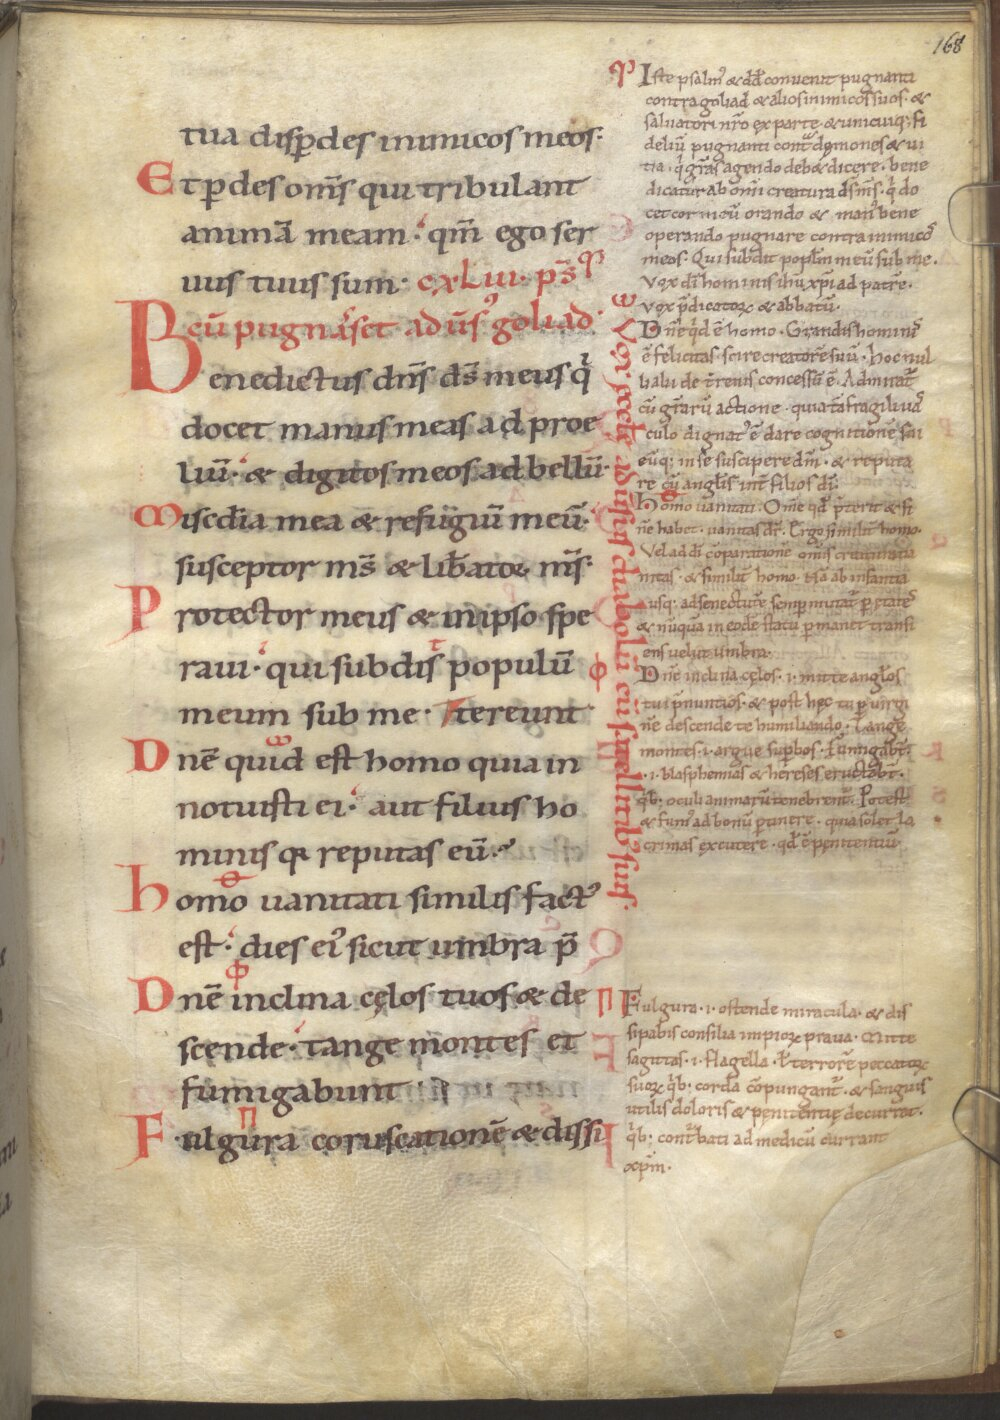 168
tua disꝑdes inimicos meos:
Et ꝑdes om̄s qui tribulant
animā meam · qm̄ ego ser
uus tuus sum · cxLiii · ps̄
cū pugnaret aduſ᷒ goliad·
Benedictus dn̄s ds̄ meus q̇
docet manus meas ad proe
liū · & digitos meos ad bellū·
Misc̄dia mea & refugiū meū·
susceptor ms̄ & lib̄ator ms̄·
Protector meus & in ipso spe
raui · qui subdis populū
meum sub me ·
Dn̄e quid est homo quia in
notuisti ei · aut filius ho
minis qꝛ reputas eū·
Homo uanitati similis fact᷒
est · dies ei᷒ sicut umbra p̄
tereunt·
Dn̄e inclina cęlos tuos & de
scende · tange montes et
fumigabunt
Fulgura coruscationē & dissi
Vox ęccłę aduſ᷒ diabolū cū satellitib᷒ suis·
Iste psalm᷒ & dd̄ conuenit pugnanti
contra goliad & alios inimicos suos · &
saluatori nr̄o ex parte · & unicuiq; fi
deliū pugnanti cont̄ dęmones & ui
tia · q̇ gr̄as agendo deb& dicere · bene
dicatur ab omni creatura ds̄ ms̄ · q̇ do
cet cor meū orando & man᷒ bene
operando pugnare contra inimicō
meos · Qui subdit popl̄m meū sub me ·
Vox dn̄i hominis ihū xp̄i ad patrē ·
uox p̄dicatoꝝ & abbatū·
Dn̄e q̇d ē homo · Grandis homini᷒
ē felicitas · scire creatorē suū · hoc nul
li alii de t̄renis concessū ē · Admirat᷒
cū gr̄arū actione · quia tā fragili uas
culo dignat᷒ ē dare cognitionē sui
eūq; in se suscipere dm̄ · & reputa
re cū angl̄is int̄ filios dī·
Homo uanitati · Om̄e qd̄ p̄terit & fi
nē habet · uanitas dr̄ · Ergo similis homo·
Vel ad dī cōparationē omīs creatura ua
nitas · & similit̄ homo · Nā ab infantia
usq; ad senectutē semꝑ mutat᷒ ꝑ ętatē
& nūquā in eodē statu ꝑmanet transi
ens uelut umbra·
Dn̄e inclina cęlos · i · mitte angl̄os
tui p̄nuntios · & post hęc tu ꝑ uirgi
nē descende te humiliando · Tange
montes · i · argue suꝑbos · Fumigabt̄
· i · blasphemias & hereses eructabt̄ ·
q̇b; oculi animarū tenebrent᷒ · Potest
& fum᷒ ad bonū ꝑtinere · quia solet la
crimas excutere · qd̄ ē pęnitentiū·
Fulgura · i · ostende miracula · & dis
sipabis consilia impioꝝ praua · Mitte
sagittas · i · flagella · ł terrorē peccatoꝝ
suoꝝ q̇b; corda cōpungant᷒ · & sanguis
utilis doloris & pęnitentię decurrat ·
q̇b; cont̄bati ad medicū currant
xp̄m·